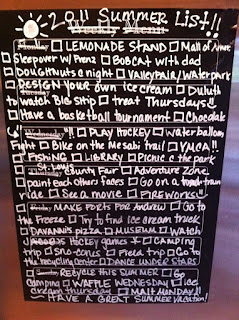 2011 Summer List!!
Weekly Menu
Monday □ LEMONADE STAND □ Mall of Amer.
Sleepover w/ Frenz □ BOBCAT with dad
□ Doughnuts @ night □ Valleyfair/Waterpark
□ DESIGN your own ice cream □ Duluth
to watch Big Ship □ treat Thursdays!!
□ Have a basketball tournament □ Chocolate
!! □ PLAY HOCKEY □ water balloon
Fight □ Bike on the Mesabi trail □ YMCA!!
□ FISHING □ LIBRARY □ Picnic @ the park
□ St. Louis County Fair □ Adventure Zone
paint each others faces □ Go on a train
ride □ See a movie □ FIREWORKS!!
□ MAKE POPS FOR Andrew □ Go to
the Freeze □ Try to find ice cream truck
□ DAVANNI'S pizza □ MUSEUM □ Watch
Hockey games □ CAMPING
trip □ Sno-cones □ Field trip □ Go to
the recycling center □ DANCE UNDER STARS
□ RECYCLE THIS SUMMER □ Go
camping □ WAFFLE WEDNESDAY □ ice
cream thursday □ MALT MUNDAY!!
~ HAVE A GREAT SUMMER VACATION!